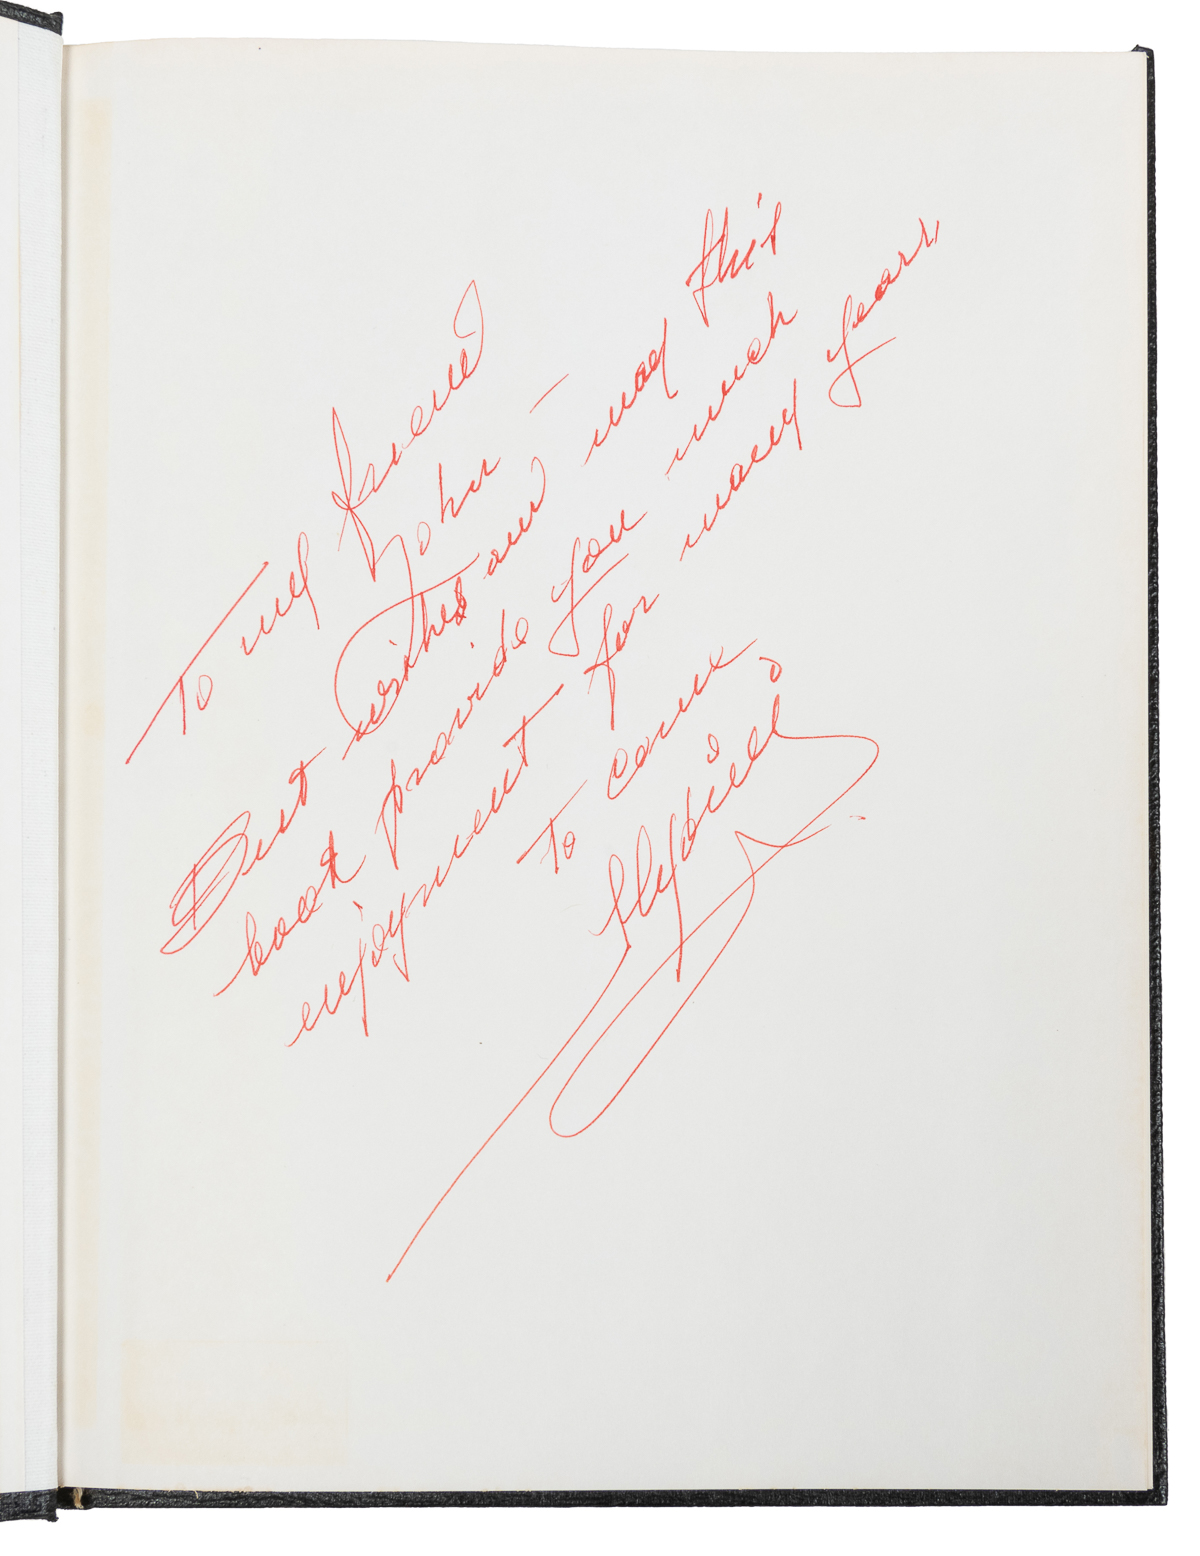 To my friend
John —
Best wishes and may this
book provide you much
enjoyment for many years
to come